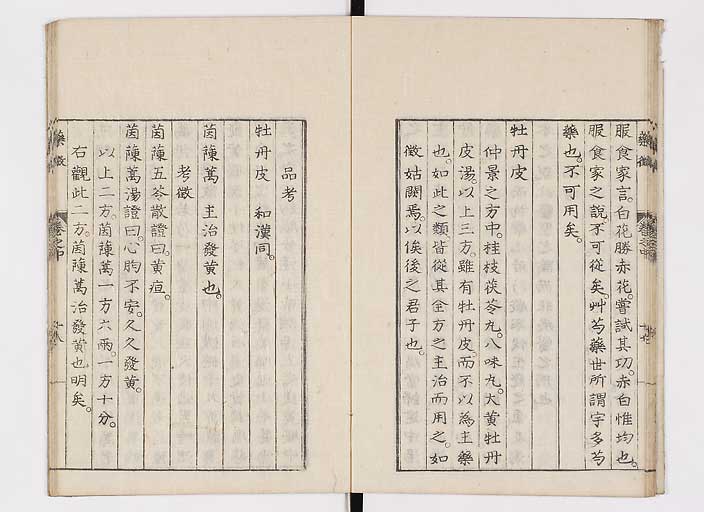 服食家言。白花勝赤花。嘗試其功。赤白惟均也。
服食家之說。不可從矣。艸芍藥世所謂宇多芍
藥也。不可用矣。
牡丹皮
仲景之方中。桂枝茯苓丸。八味丸。大黃牡丹
皮湯。以上三方。雖有牡丹皮。而不以為主藥
也。如此之類。皆從其全方之主治而用之。如
徵姑闕焉。以俟後之君子也。
藥徵
卷之中
品考
牡丹皮 和漢同。
茵蔯蒿 主治發黃也。
考徵
茵蔯五苓散證曰。黃疸。
茵蔯蒿湯證曰。心胸不安。久久發黃。
以上二方。茵蔯蒿一方六兩。一方十分。
右觀此二方。茵蔯蒿治發黃也明矣。
藥徵
卷之中
十八